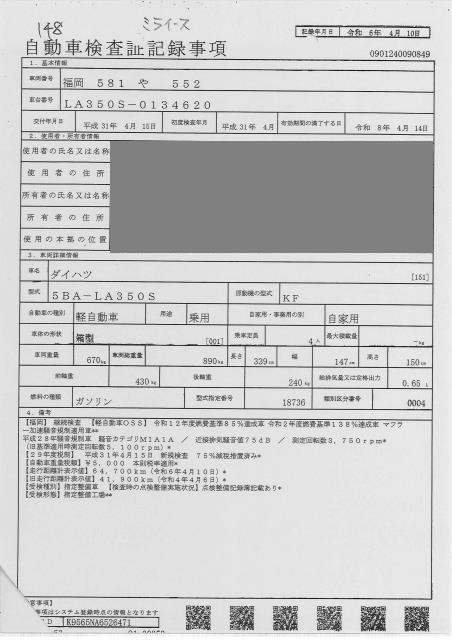 148
ミライース
記録年月日 令和 6年 4月 10日
自動車検査証記録事項
0901240090849
1. 基本情報
車両番号 福岡 581 や 552
車台番号 LA350S-0134620
交付年月日 平成 31年 4月 15日 初度検査年月 平成 31年 4月 有効期間の満了する日 令和 8年 4月 14日
2. 使用者・所有者情報
使用者の氏名又は名称
使用者の住所
所有者の氏名又は名称
所有者の住所
使用の本拠の位置
3. 車両詳細情報
車名 ダイハツ [151]
型式 5BA-LA350S 原動機の型式 KF
自動車の種別 軽自動車 用途 乗用 自家用・事業用の別 自家用
車体の形状 箱型 [001] 乗車定員 4人 最大積載量 -kg
車両重量 670kg 車両総重量 890kg 長さ 339cm 幅 147cm 高さ 150cm
前軸重 430kg 後軸重 240kg 総排気量又は定格出力 0.65 L
燃料の種類 ガソリン 型式指定番号 18736 類別区分番号 0004
4. 備考
【福岡】 継続検査 【軽自動車OSS】 令和12年度燃費基準85%達成車 令和2年度燃費基準138%達成車 マフラ
ー加速騒音規制適用車**
平成28年騒音規制車 騒音カテゴリM1A1A / 近接排気騒音値75dB / 測定回転数3,750rpm*
(旧基準適用時測定回転数5,100rpm)*
【29年度税制】 平成31年4月15日 新規検査 75%減税措置済み*
【自動車重量税額】¥5,000 本則税率適用*
【走行距離計表示値】64,700km(令和6年4月10日)*
【旧走行距離計表示値】41,900km(令和4年4月6日)*
【受検種別】指定整備車 【検査時の点検整備実施状況】点検整備記録簿記載あり*
【受検形態】指定整備工場**
意事項】
事項はシステム登録時点の情報となります
D K9565NA6526471